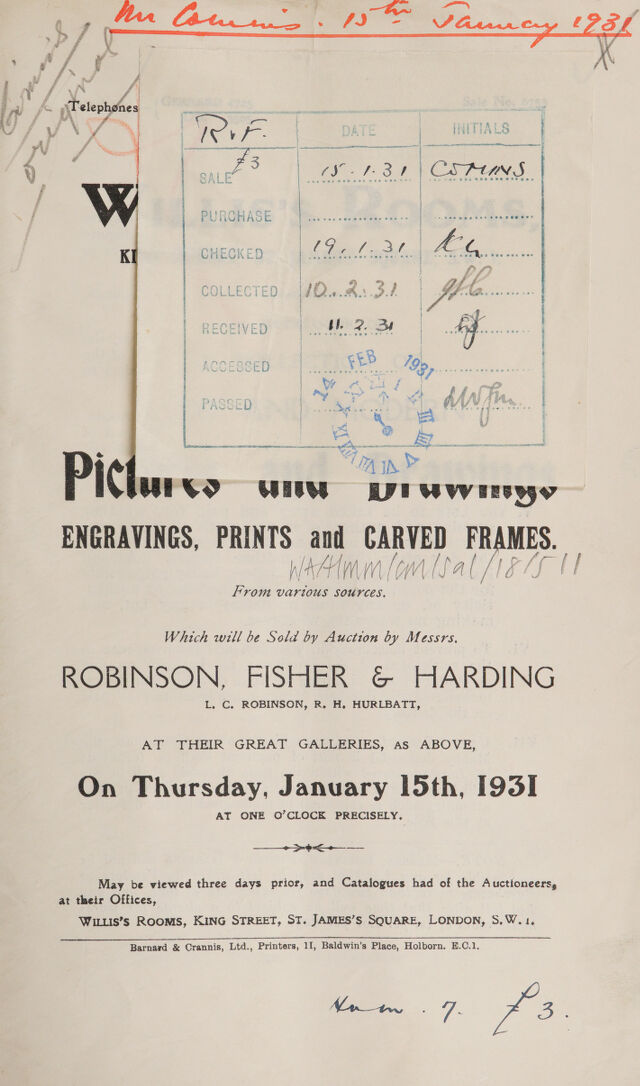 Mr Comins. 15th January 1931
Comins
original
Telephones
R.F. DATE INITIALS
£3
SALE 15.1.31 COMINS
PURCHASE
CHECKED 19.1.31
COLLECTED 10.2.31
RECEIVED 11.2.31
ACCESSED
14 FEB 1931
PASSED
WILLIS'S ROOMS,
KI
Pictures and Drawings
ENGRAVINGS, PRINTS and CARVED FRAMES.
WA/Hmm/cm/sal/18/511
From various sources.
Which will be Sold by Auction by Messrs.
ROBINSON, FISHER & HARDING
L. C. ROBINSON, R. H. HURLBATT,
AT THEIR GREAT GALLERIES, AS ABOVE,
On Thursday, January 15th, 1931
AT ONE O'CLOCK PRECISELY.
May be viewed three days prior, and Catalogues had of the Auctioneers,
at their Offices,
WILLIS'S ROOMS, KING STREET, ST. JAMES'S SQUARE, LONDON, S.W. 1.
Barnard & Crannis, Ltd., Printers, 11, Baldwin's Place, Holborn. E.C.1.
7. £3.